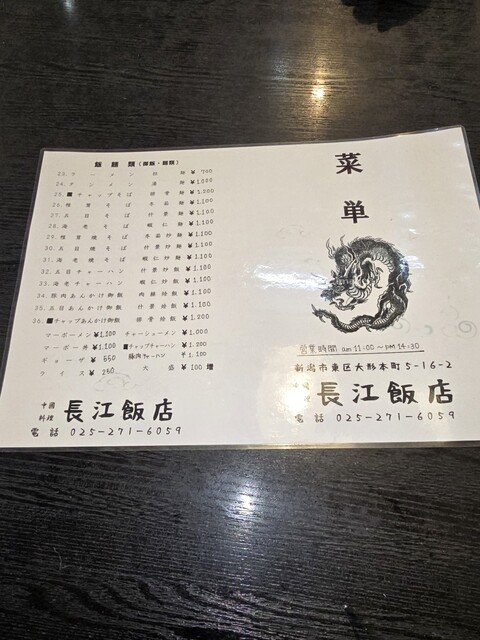 飯麺類(御飯・麺類)
23. ラーメン 拌麺 ¥700
24. タンメン 湯麺 ¥1,000
25. ■チャップそば 排骨麺 ¥1,200
26. 椎茸そば 冬菇麺 ¥1,100
27. 五目そば 什景麺 ¥1,100
28. 海老そば 蝦仁麺 ¥1,100
29. 椎茸焼そば 冬菇炒麺 ¥1,100
30. 五目焼そば 什景炒麺 ¥1,100
31. 海老焼そば 蝦仁炒麺 ¥1,100
32. 五目チャーハン 什景炒飯 ¥1,100
33. 海老チャーハン 蝦仁炒飯 ¥1,100
34. 豚肉あんかけ御飯 肉絲烩飯 ¥1,100
35. 五目あんかけ御飯 什景烩飯 ¥1,100
36. ■チャップあんかけ御飯 排骨烩飯 ¥1,200
マーボーメン ¥1,100 チャーシューメン ¥1,000
マーボー丼 ¥1,100 ■チャップチャーハン ¥1,200
ギョーザ ¥550 豚肉チャーハン ¥1,100
ライス ¥250 大盛 ¥100増
中國料理 長江飯店
電話 025-271-6059
菜単
営業時間 am 11:00~pm 14:30
新潟市東区大形本町5-16-2
長江飯店
電話 025-271-6059